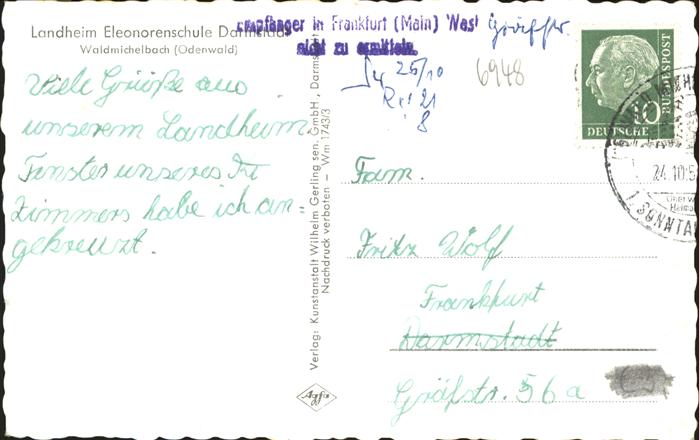 Landheim Eleonorenschule Darmstadt
Waldmichelbach (Odenwald)
Empfänger in Frankfurt (Main) West
nicht zu ermitteln.
Gräfstr.
25/10
21
8
6948
DEUTSCHE BUNDESPOST
10
24.10.5
SONNTA
Viele Grüße aus
unserem Landheim.
Fenster unseres
Zimmers habe ich an=
gekreuzt.
Verlag: Kunstanstalt Wilhelm Gerling sen. GmbH., Darmstadt
Nachdruck verboten – Wm 1743/3
Agfa
Fam.
Fritz Wolf
Frankfurt
Darmstadt
Gräfstr. 56a